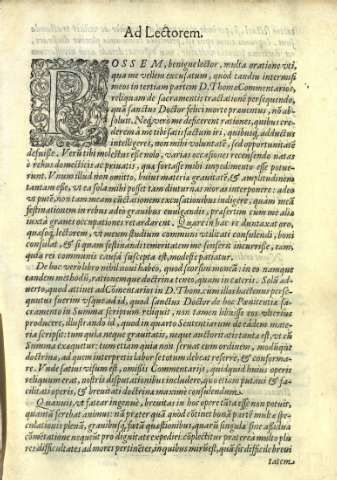 Ad Lectorem.
POSSEM, benigne lector, multa oratione vti,
qua me vellem excusatum, quod tandiu intermisi
meos in tertiam partem D. Thomæ Commentarios,
reliquam de sacramentis tractationē persequendo,
quā sanctus Doctor felici morte præuentus, nō ab-
soluit. Neq; vero me deficerent rationes, quibus cre-
derem à me tibi satisfactum iri, quibusq; adductus
intelligeres, non mihi voluntatē, sed opportunitatē
defuisse. Verū tibi molestus esse nolo, varias occasiones recensendo natas
à rebus domesticis ac priuatis, quæ fortasse mihi impedimento esse potue-
runt. Vnum illud non omitto, huius materiæ grauitatē, & amplitudinem
tantam esse, vt ea sola mihi posset tam diuturnas moras interponere: adeo
vt putē, non tam meam cūctationem excusationibus indigere, quàm meā
festinationem in rebus adeo grauibus euulgandis, præsertim cum me aliæ
iuxta graues occupationes retardarent. Quare in hac re duntaxat oro,
quæso lector, vt meum studium communi vtilitati consulendi, boni
consulas, & si quam festinandi temeritatem me sensero incurrisse, tam,
quia rei communis causa suscepta est, modestè patiatur.
De hoc verò libro nihil noui habeo, quod seorsim moneā: in eo namque
eandem methodū, rationemque doctrinæ teneo, quam in cæteris. Solū ad-
uerto, quod attinet ad Cōmentarios in D. Thom. cum illos hactenus perse-
quutus fuerim vsque ad id, quod sanctus Doctor de hoc Pœnitentiæ sa-
cramento in Summa scriptum reliquit, non tamen libuisse eos vlterius
producere, illustrando id, quod in quarto Sententiarum de eadem mate-
ria scripsit: tum quia neque grauitatis, neque auctoritatis tantæ est, vt eā
Summa exequatur: tum etiam quia non seruat eum ordinem, modumque
doctrinæ, ad quem interpretis labor so totum debeat referrē, & conforma-
re. Vnde satius visum est, omissis Commentarijs, quidquid huius operis
reliquum erat, nostris disputationibus includere, quo etiam putaui & fa-
cilitati operis, & breuitati doctrinæ maximè consulendum.
Quanuis, vt fatear ingenuè, breuitas in hoc opere tāta esse non potuit,
quantā ferebat animus: nā præterquā quod cōtinet bonā partē multæ spe-
culationis plenā, grauibusq; fætā quæstionibus, quarū singulæ sine assidua
cōmētatione nequeūt pro dignitate expediri: cōplectitur præterea multo plu
res difficultates ad mores pertinētes, in quibus mirū est, quā sit difficile breui
tatem